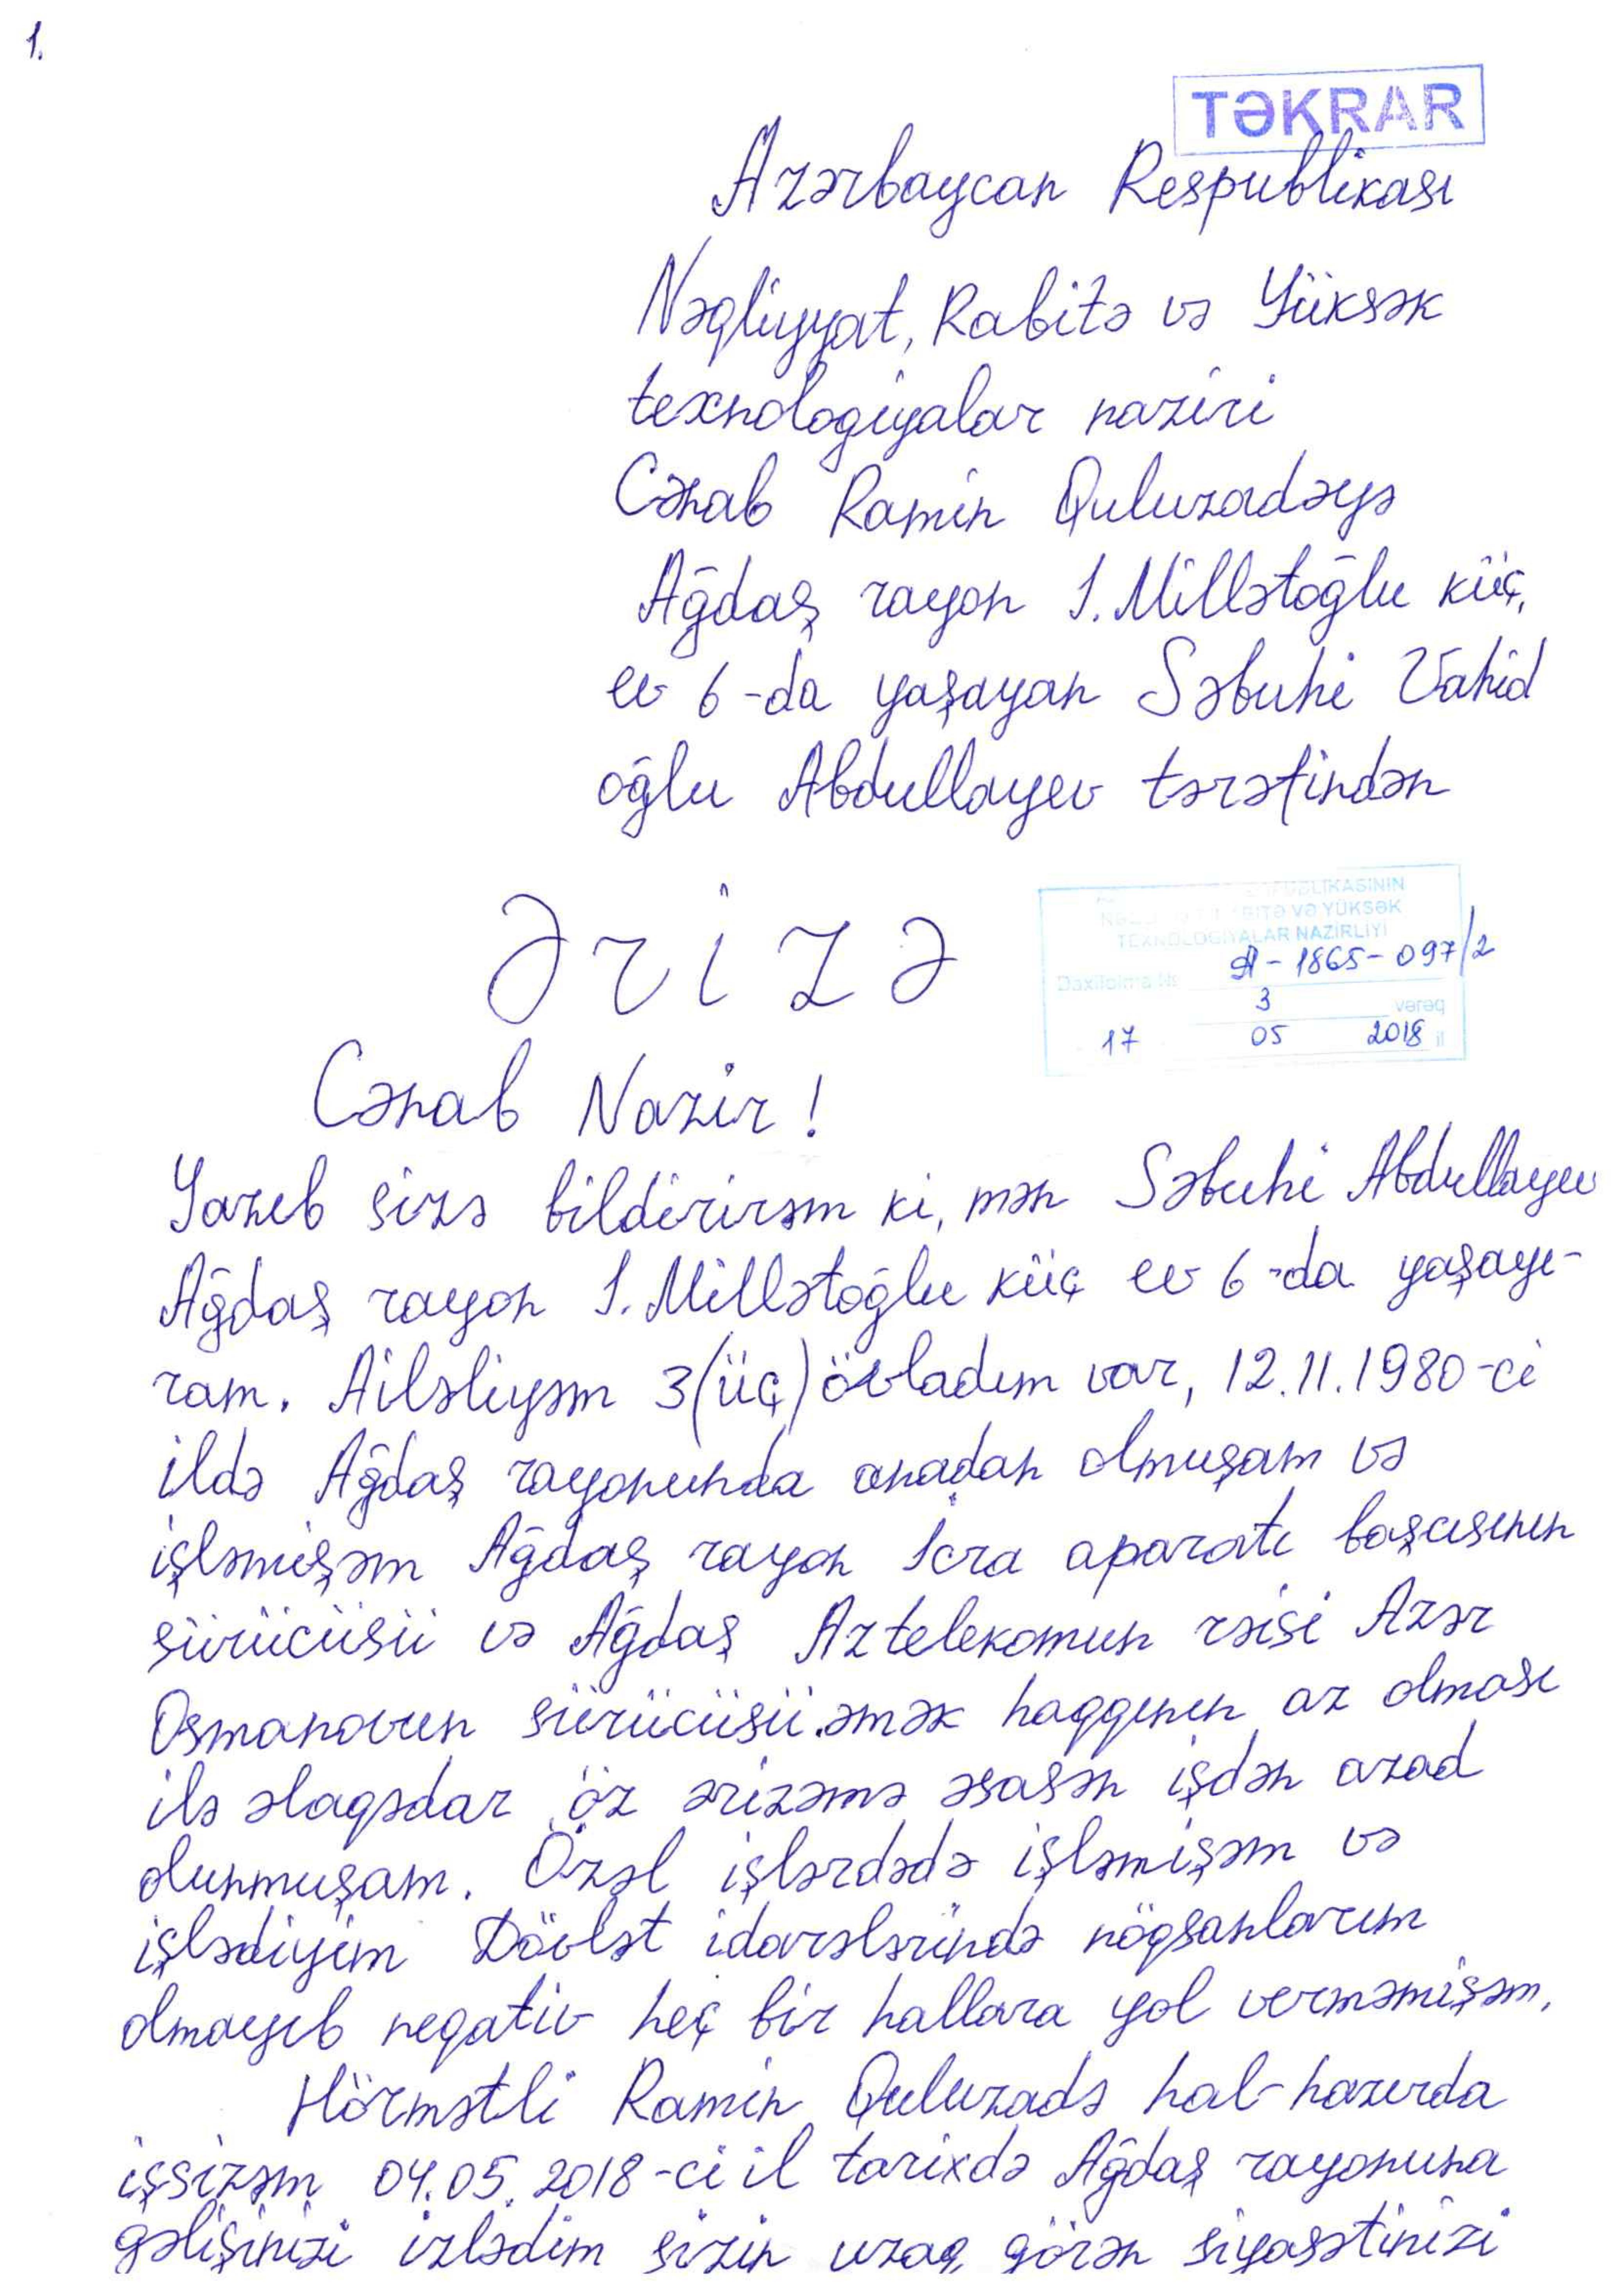 1.
TƏKRAR
Azərbaycan Respublikası
Nəqliyyat, Rabitə və Yüksək
texnologiyalar naziri
Cənab Ramin Quluzadəyə
Ağdaş rayon 1. Millətoğlu küç,
ev 6-da yaşayan Səbuhi Vahid
oğlu Abdullayev tərəfindən
Ərizə
UBLİKASININ
RİTƏ VƏ YÜKSƏK
TEXNOLOGİYALAR NAZİRLİYİ
Daxilolma № A-1865-097/2
3 vərəq
17 05 2018 il
Cənab Nazir!
Yazıb sizə bildirirəm ki, mən Səbuhi Abdullayev
Ağdaş rayon 1. Millətoğlu küç ev 6-da yaşayı-
ram. Ailəliyəm 3(üç) övladım var, 12.11.1980-ci
ildə Ağdaş rayonunda anadan olmuşam və
işləmişəm Ağdaş rayon İcra aparatı başçısının
sürücüsü və Ağdaş Aztelekomun rəisi Azər
Osmanovun sürücüsü.əmək haqqının az olması
ilə əlaqədar öz ərizəmə əsasən işdən azad
olunmuşam. Özəl işlərdədə işləmişəm və
işlədiyim Dövlət idarələrində nöqsanlarım
olmayıb neqativ heç bir hallara yol verməmişəm,
Hörmətli Ramin Quluzadə hal-hazırda
işsizəm 04.05.2018-ci il tarixdə Ağdaş rayonuna
gəlişinizi izlədim sizin uzaq görən siyasətinizi